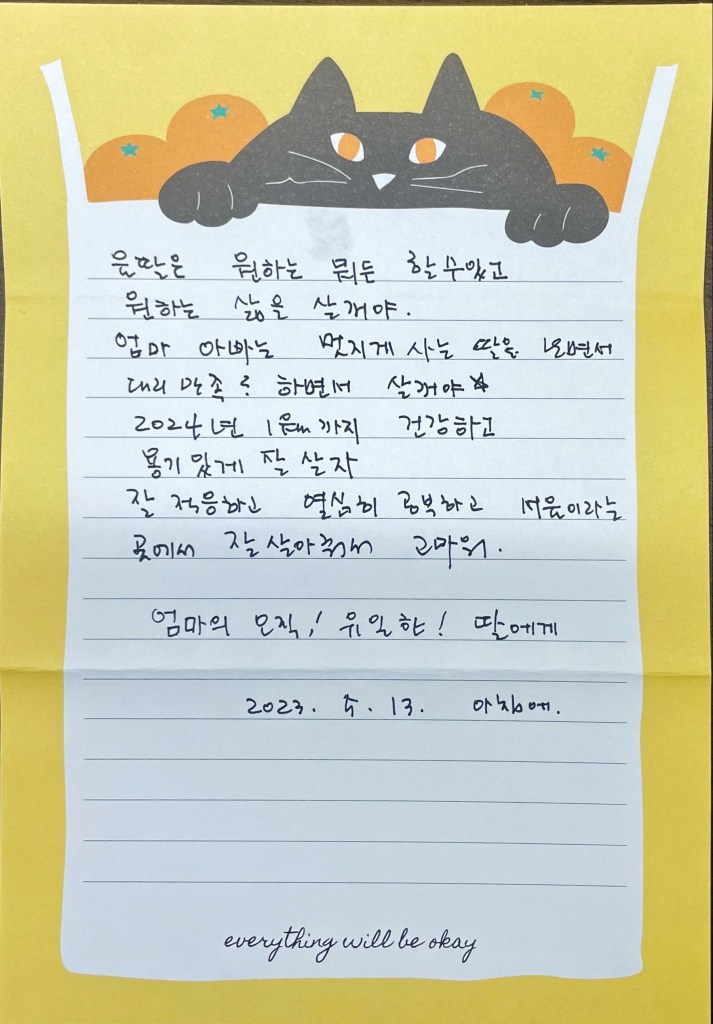 딸은 원하는 뭐든 할수있고
원하는 삶을 살꺼야.
엄마 아빠는 멋지게 사는 딸을 보면서
대리 만족 하면서 살꺼야
2024년 까지 건강하고
용기있게 잘 살자
잘 적응하고 열심히 공부하고 서울이라는
곳에서 잘살아줘서 고마워.
엄마의 오직! 유일한! 딸에게
2023. 13. 아침에.
everything will be okay